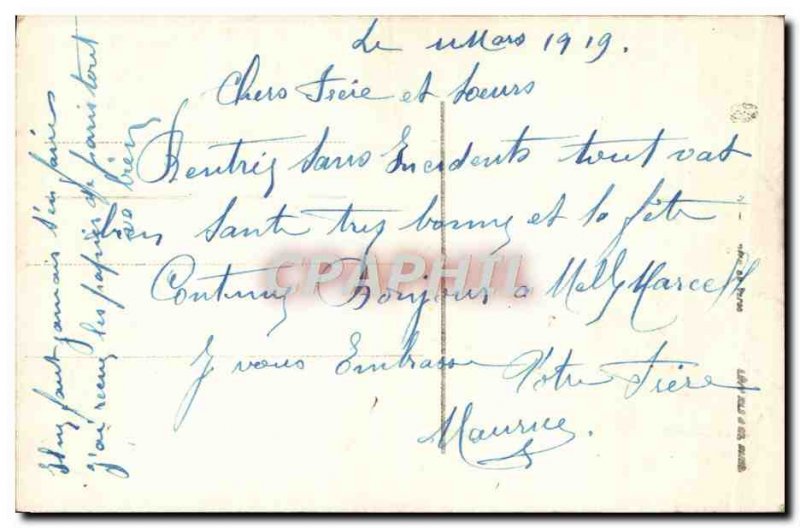 Le 11 Mars 1919.
Chers Frère et Soeurs
Rentrez sans Incidents tout vat
bien Sante tres bonne et la fête
Continuy Bonjour a Melly Marcel
Je vous Embrasse Votre Frère
Maurice.
Il ny faut jamais s'en faire
j'ai recu les papier de paris tout
va bien
CPAPHIL